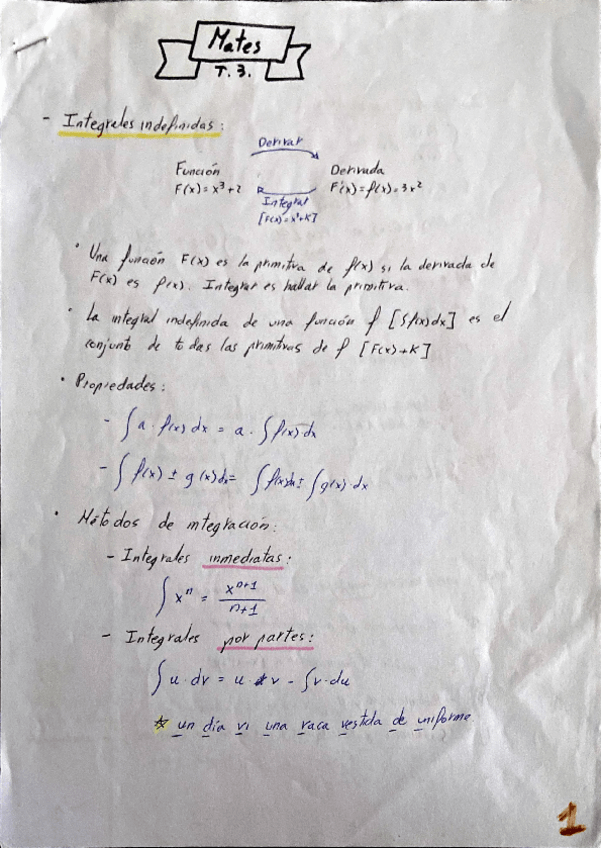 Mates
T.3.
- Integrales indefinidas:
Derivar
Función
Derivada
F(x) = x³+2
F'(x) = f(x) = 3x²
Integrar
[F(x) = x³+K]
• Una función F(x) es la primitiva de f(x) si la derivada de
F(x) es f(x). Integrar es hallar la primitiva.
• La integral indefinida de una función f [∫f(x)dx] es el
conjunto de todas las primitivas de f [F(x)+K]
• Propiedades:
- ∫a · f(x) dx = a · ∫f(x)·dx
- ∫f(x) ± g(x)dx = ∫f(x)dx ± ∫g(x)·dx
• Métodos de integración:
- Integrales inmediatas:
∫xⁿ = xⁿ⁺¹/n+1
- Integrales por partes:
∫u · dv = u · v - ∫v·du
* un día vi una vaca vestida de uniforme
1